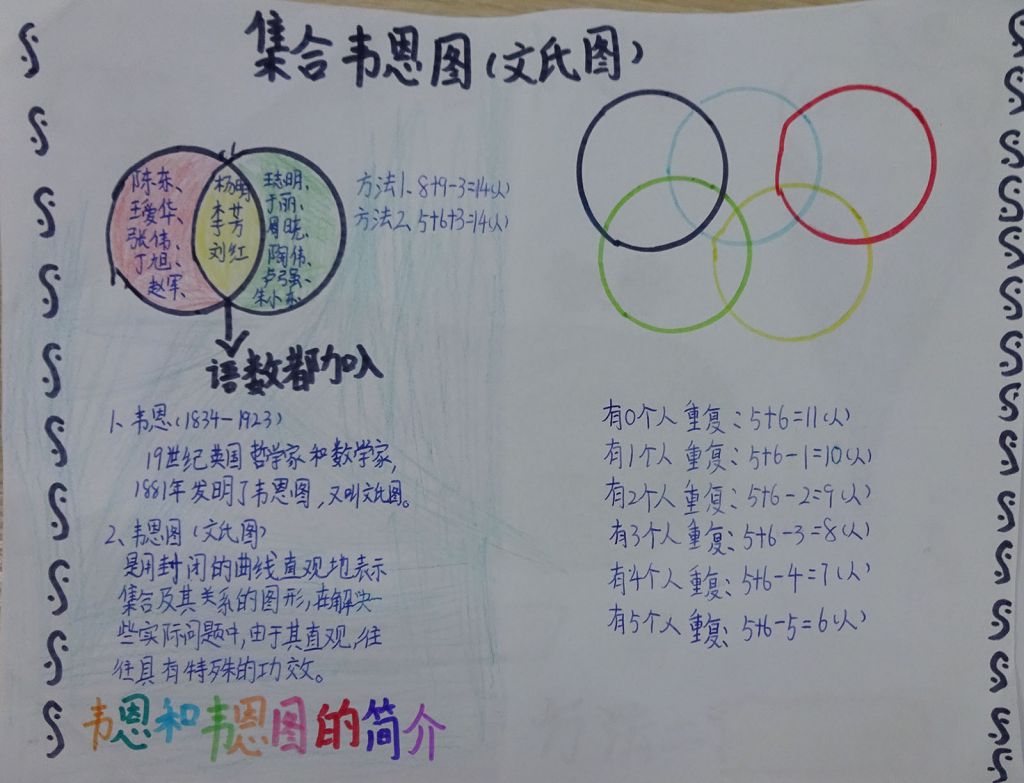 集合韦恩图(文氏图)
陈东、
王爱华、
张伟、
丁旭、
赵军、
杨明
李芳
刘红
王志明、
于丽、
周晓、
陶伟、
卢强、
朱小东
方法1、8+9-3=14(人)
方法2、5+6+3=14(人)
语数都加入
1、韦恩(1834-1923)
19世纪英国哲学家和数学家,
1881年发明了韦恩图,又叫文氏图。
2、韦恩图(文氏图)
是用封闭的曲线直观地表示
集合及其关系的图形,在解决一
些实际问题中,由于其直观,往
往具有特殊的功效。
韦恩和韦恩图的简介
有0个人重复:5+6=11(人)
有1个人重复:5+6-1=10(人)
有2个人重复:5+6-2=9(人)
有3个人重复:5+6-3=8(人)
有4个人重复:5+6-4=7(人)
有5个人重复:5+6-5=6(人)